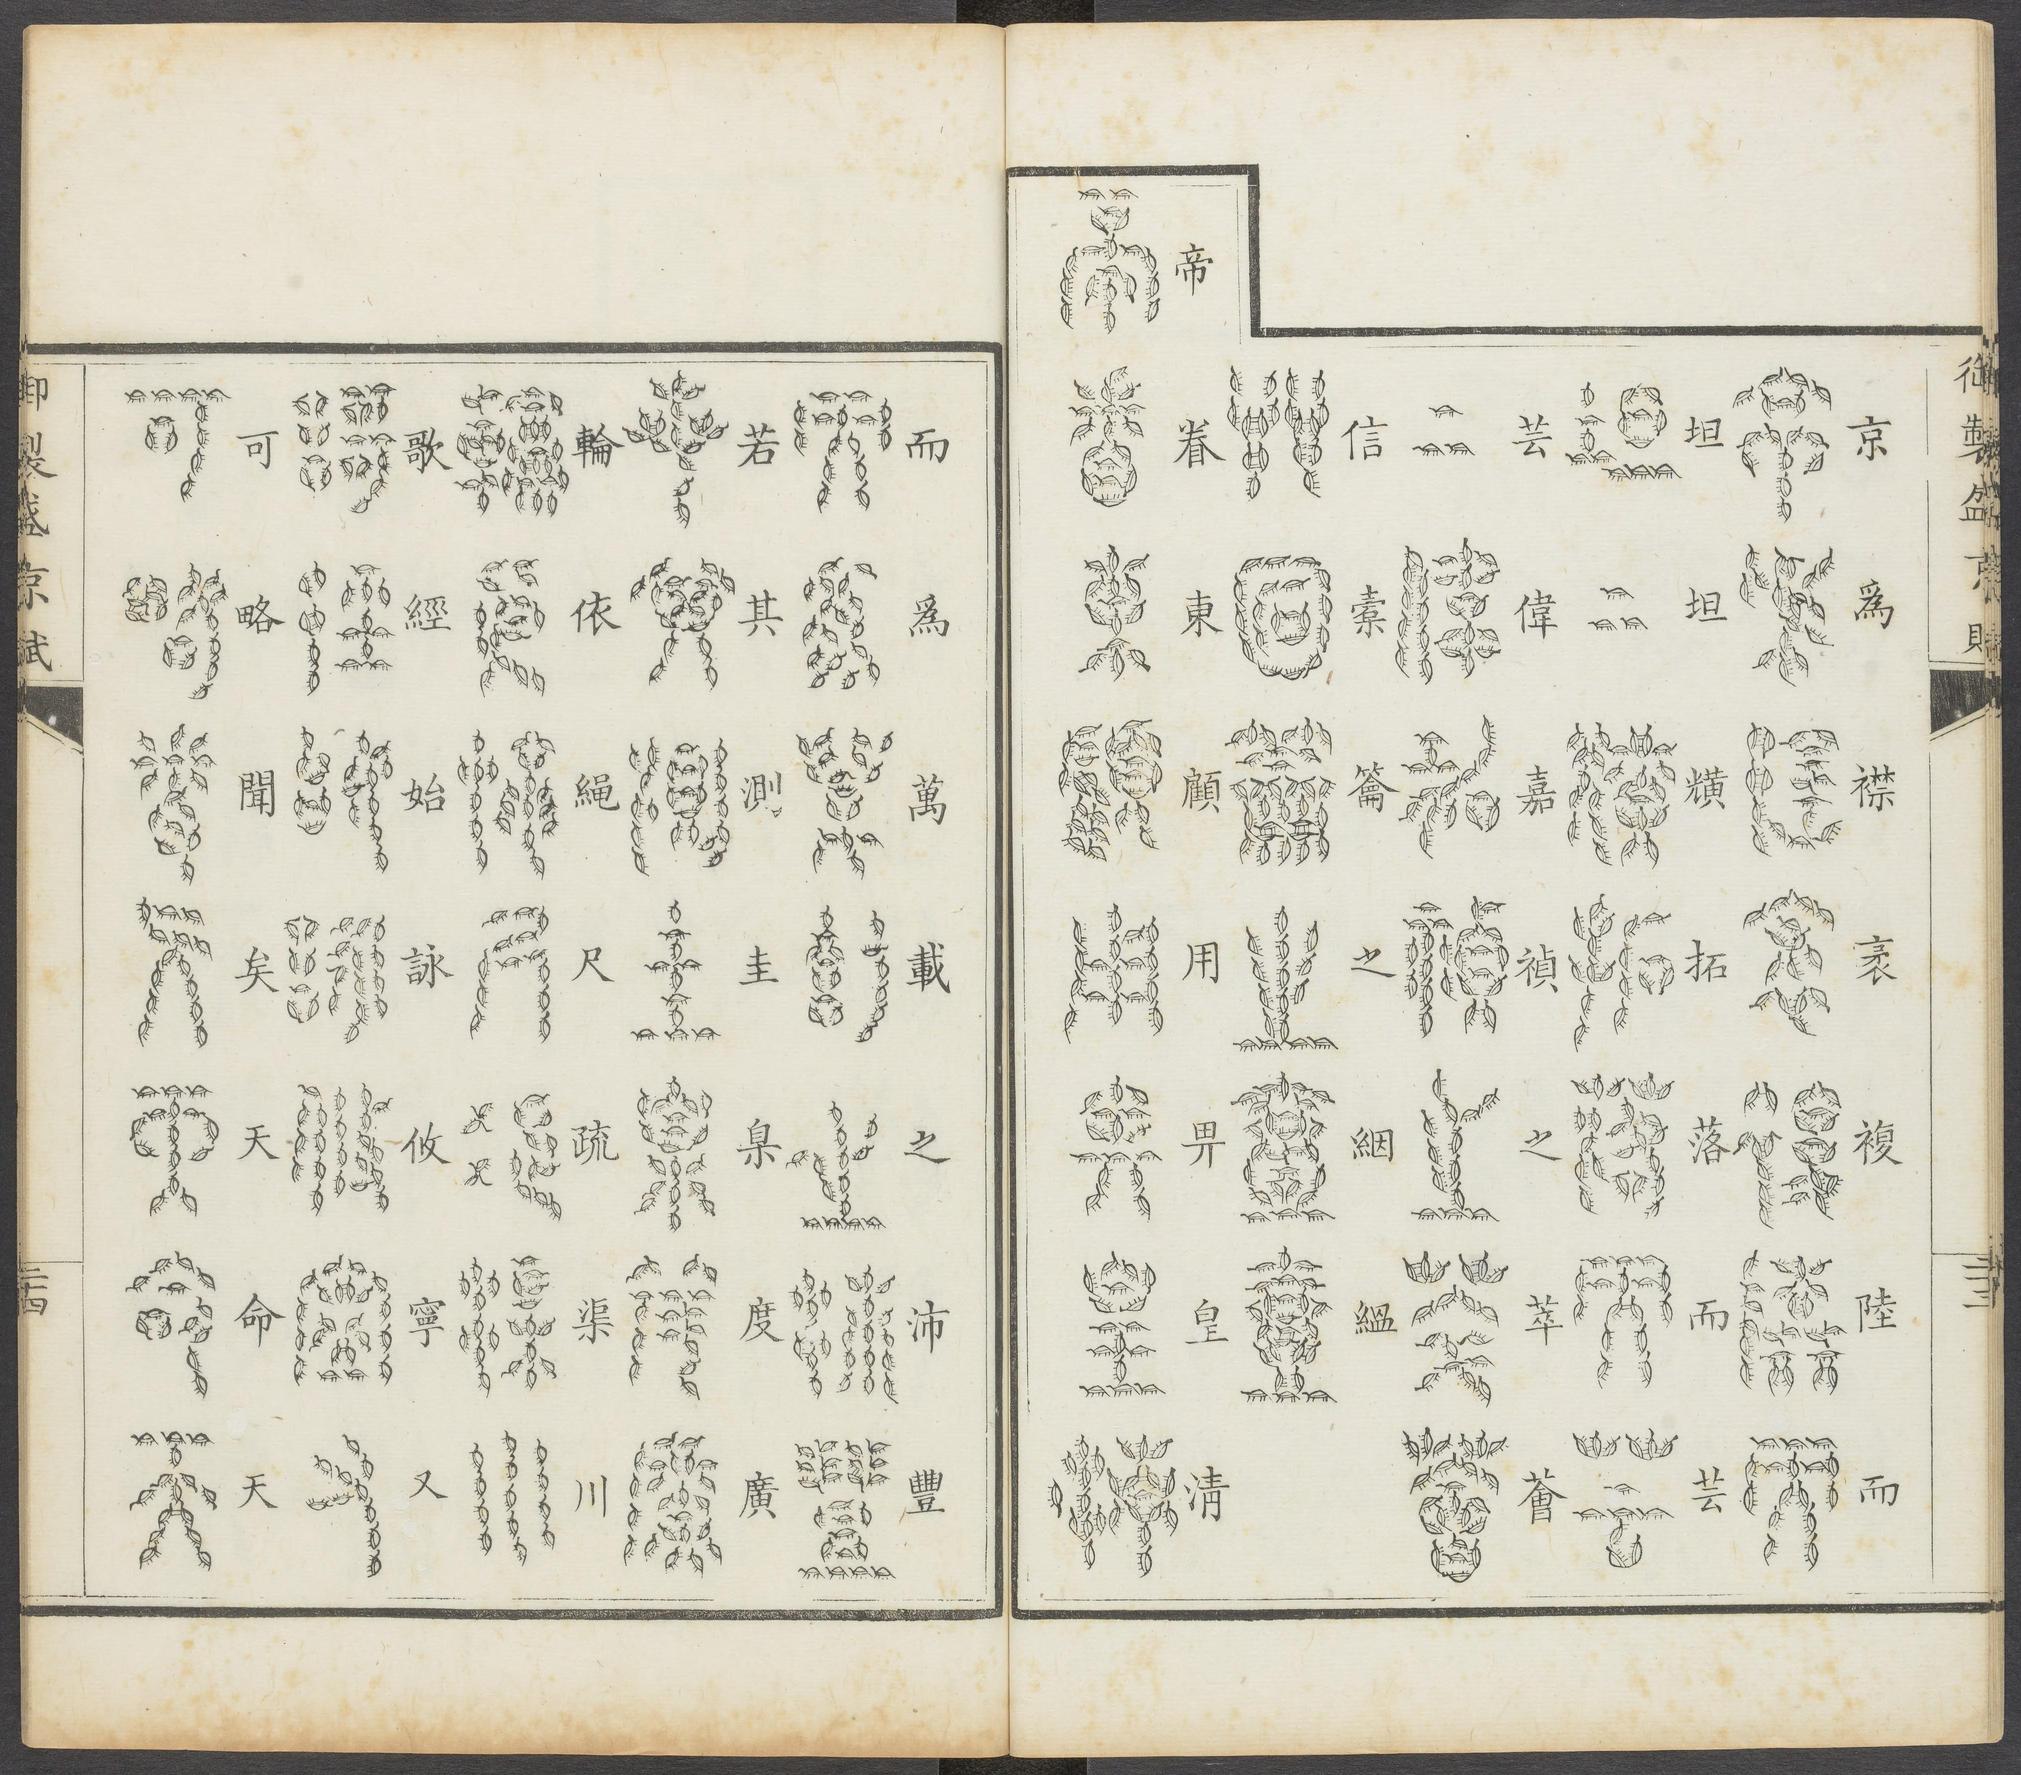 御製盛京賦
京為襟袤複陸而
坦坦𤯷拓落而芸
芸偉嘉禎之萃薈
信橐籥之絪縕
帝眷東顧用畀皇清
三十三
而為萬載之沛豐
若其測圭臬度廣
輪依繩尺疏渠川
歌經始詠攸寧又
可略聞矣天命天
御製盛京賦
三十四